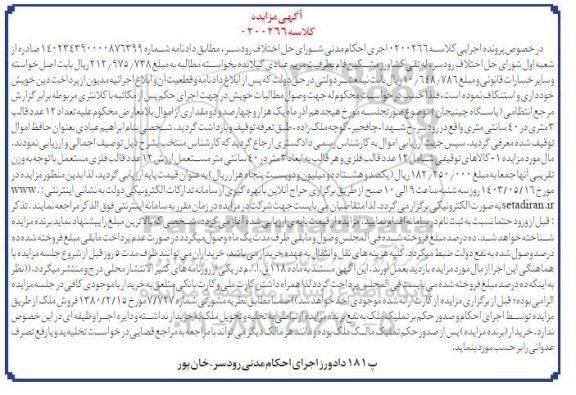 آگهی مزایده
کلاسه ۰۲۰۰۲۶۶
در خصوص پرونده اجرایی کلاسه ۰۲۰۰۲۶۶ اجرای احکام مدنی شورای حل اختلاف رودسر، مطابق دادنامه شماره ۱۴۰۲۳۴۳۹۰۰۰۰۸۷۶۳۹۹ صادره از
شعبه اول شورای حل اختلاف رودسر له تقی کشاورز مشکین فام بطرفیت مریم عبادی گیلانده بخواسته مطالبه به مبلغ ۲۱۲/۹۷۵/۷۳۸ ریال بابت اصل خواسته
و سایر خسارات قانونی و مبلغ ۱۰/۶۴۸/۷۸۶ ریال بابت نیم عشر دولتی در حق دولت که پس از ابلاغ دادنامه و قطعیت آن و ابلاغ اجرائیه مدیون از پرداخت دین خویش
خودداری و استنکاف نموده است، فلذا حسب درخواست محکوم له جهت وصول مطالبات خویش در جهت اجرای حکم پس از مکاتبه با کلانتری مربوطه برابر گزارش
مرجع انتظامی (پاسگاه چینیجان) موضوع صورتجلسه مورخ هیجدهم آذر ماه یک هزار و چهارصد و دو مقداری از اموال بلامعارض محکوم علیه تعداد ۱۲ عدد قالب
۳ متری در ۴۰ سانتی متری واقع در رودسرخ شهدا-چافجیر-کوچه ملک زاده - طبق تعرفه توقیف و بازداشت گردید. شخصی بنام ابراهیم عبادی بعنوان حافظ اموال
توقیف شده معرفی گردید. سپس جهت ارزیابی اموال به کارشناس رسمی دادگستری ارجاع گردید که کارشناس منتخب بشرح ذیل توصیف اجمالی و ارزیابی نمودند.
مال مورد مزایده ۱-کالاهای توقیفی شامل ۱۲ عدد قالب فلزی و هر قالب به ابعاد ۳ متر در ۴۰ سانتی متر مستعمل ارزش ۱۲ عدد قالب فلزی مستعمل با توجه به وزن
تقریبی آنها جمعا به مبلغ ۱۸۲/۲۵۰/۰۰۰ ریال (یکصد و هشتاد و دو میلیون و دویست پنجاه هزار ریال) به عنوان قیمت پایه ارزیابی گردید. لذا بدین منظور مزایده در
مورخ ۱۴۰۳/۰۵/۱۶ روز سه شنبه ساعت ۹ الی ۱۰ صبح از طریق برگزاری حراج آنلاین با بهره گیری از سامانه تدارکات الکترونیکی دولت به نشانی اینترنتی: www.
setadiran.ir به صورت الکترونیکی برگزار می گردد. لذا متقاضیان می بایست جهت شرکت در مزایده در زمان مقرر به سامانه اینترنتی فوق الذکر مراجعه نمایند. تذکر
: قبل از ورود حتما نسبت به ثبت نام در سامانه اقدام نمایید. مزایده از قیمت پایه ی ارزیابی شده آغاز می گردد. شخصی که بالاترین مبلغ را پیشنهاد نماید برنده مزایده
شناخته خواهد شد. ده درصد مبلغ فروخته شده فی المجلس وصول و مابقی ظرف مدت یک ماه وصول میگردد در صورت عدم پرداخت مابقی مبلغ فروخته شده ده
درصد وصول شده به نفع دولت ضبط میگردد. کلیه هزینه های نقل و انتقال به عهده خریدار می باشد. خریداران می توانند ظرف مدت ۵ روز قبل از شروع جلسه مزایده با
هماهنگی این اجرا از مال مورد مزایده بازدید بعمل آورند. این آگهی مستند به ماده ۱۲۸ ق.ا.م در یکی از روزنامه های کثیر الانتشار محلی درج و منتشر میگردد. ((نظر
به اینکه ده درصد مبلغ فروخته شده می بایست فی المجلس پرداخت گردد لذا همراه داشتن کارت ملی و کارت بانکی متعلق به خریدار با موجودی کافی در جلسه مزایده
الزامی بوده؛ قبل از برگزاری مزایده از کارت ارائه شده موجودی اخذ خواهد شد)) ضمنا مطابق نظریه مشورتی شماره ۷/۷۲۷ مورخ ۱۳۸۰/۲/۱۵ فروش ملک از طریق
مزایده توسط اجرای احکام و صدور حکم بر تملیک ملک به نفع برنده مزایده ارتباطی با تخلیه و تحویل ملک به خریدار نداشته و دایره اجرا وظیفه ای در این خصوص
ندارد. خریدار (برنده مزایده) پس از صدور حکم تملیک مالک ملک بوده و مانند هر مالک دیگر می تواند با مراجعه به مراجع قضایی درخواست تخلیه ید و یا رفع تصرف
عدوانی را بر حسب مورد بنماید.
پ ۱۸۱ دادورز اجرای احکام مدنی رودسر - خان پور